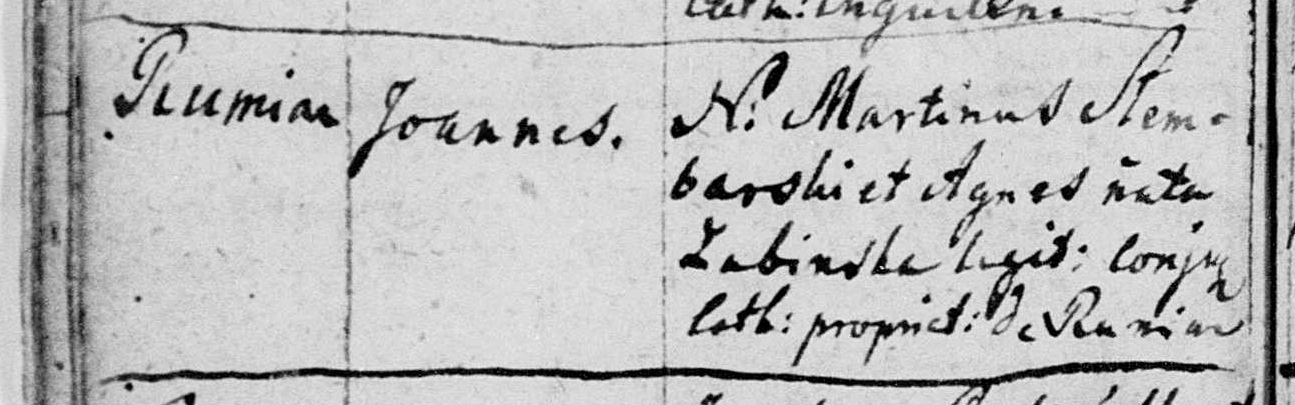 Cath: inquilini
Rumian Joannes. N: Martinus Stem-
barski et Agnes nata
Zabinska legit: Conjug
Cath: propriet: de Rumian